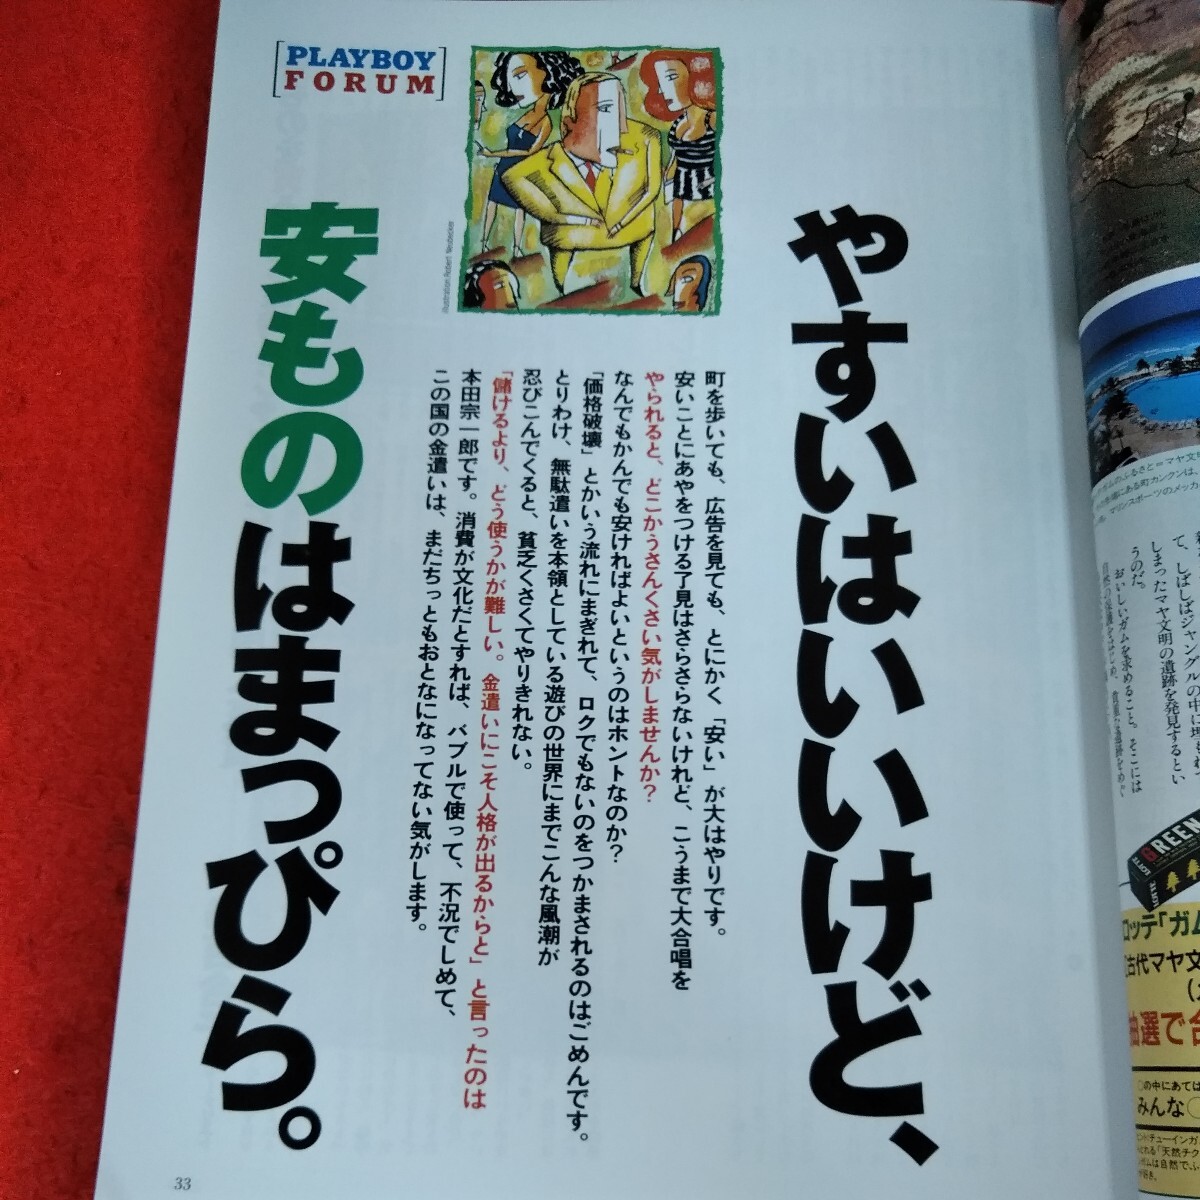 [PLAYBOY
FORUM]
やすいはいいけど、
安ものはまっぴら。
町を歩いても、広告を見ても、とにかく「安い」が大はやりです。
安いことにあやをつける了見はさらさらないけれど、こうまで大合唱を
やられると、どこかうさんくさい気がしませんか?
なんでもかんでも安ければよいというのはホントなのか?
「価格破壊」とかいう流れにまぎれて、ロクでもないのをつかまされるのはごめんです。
とりわけ、無駄遣いを本領としている遊びの世界にまでこんな風潮が
忍びこんでくると、貧乏くさくてやりきれない。
「儲けるより、どう使うかが難しい。金遣いにこそ人格が出るからと」と言ったのは
本田宗一郎です。消費が文化だとすれば、バブルで使って、不況でしめて、
この国の金遣いは、まだちっともおとなになってない気がします。
Illustration Robert Neubecker
33
ガムのふるさと=マヤ文明
にある町カンクンは、
マリンスポーツのメッカ
て、しばしばジャングルの中に埋もれ
しまったマヤ文明の遺跡を発見するとい
うのだ。
おいしいガムを求めること。そこには
LOTTE
GREEN
ロッテ「ガム
古代マヤ文
抽選で合
○の中にあては
みんな○
「天然チク
ガムは自然で、